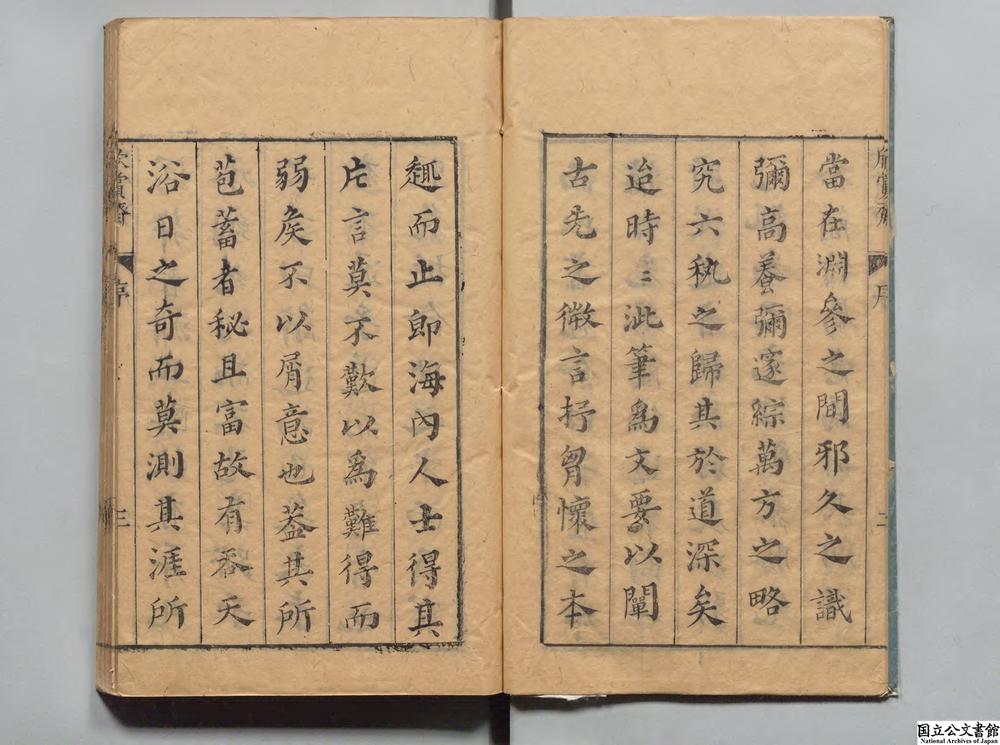 當在淵參之間邪久之識
彌高養彌邃綜萬方之略
究六埶之歸其於道深矣
迨時〻泚筆爲文要以闡
古先之微言抒胷懷之本
趣而止卽海內人士得其
片言莫不歎以爲難得而
弱矦不以屑意也葢其所
苞蓄者秘且富故有吞天
浴日之奇而莫測其涯所
欣賞齋
序
二
欣賞齋
序
三
国立公文書館
National Archives of Japan